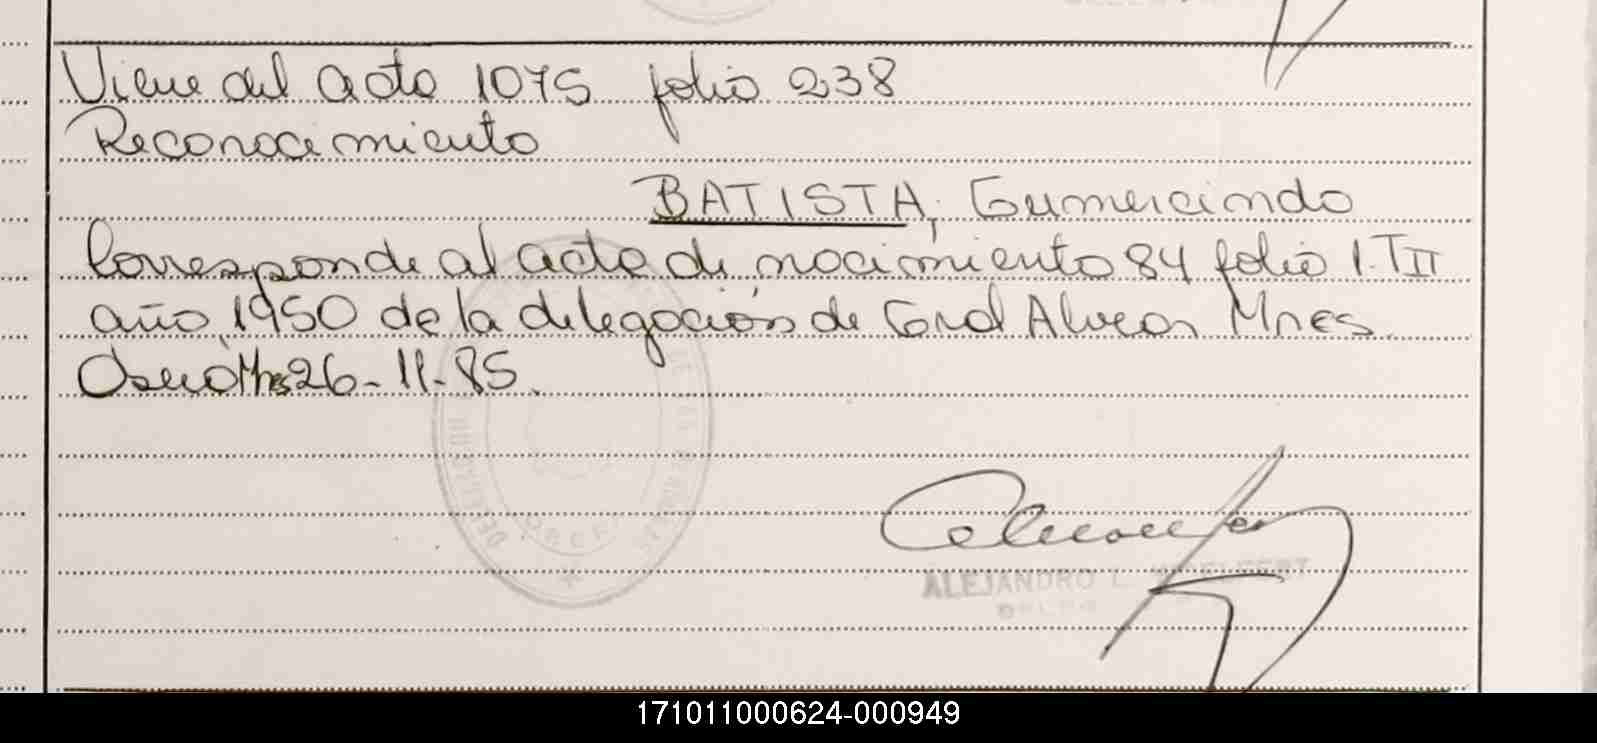 Viene del acta 1075 folio 238
Reconocimiento
BATISTA, Gumercindo
Corresponde al acta de nacimiento 84 folio 1. T II
año 1950 de la delegación de Gral Alvear Mnes.
Oberá Mnes 26-11-85.
ALEJANDRO L.
OBERA
171011000624-000949